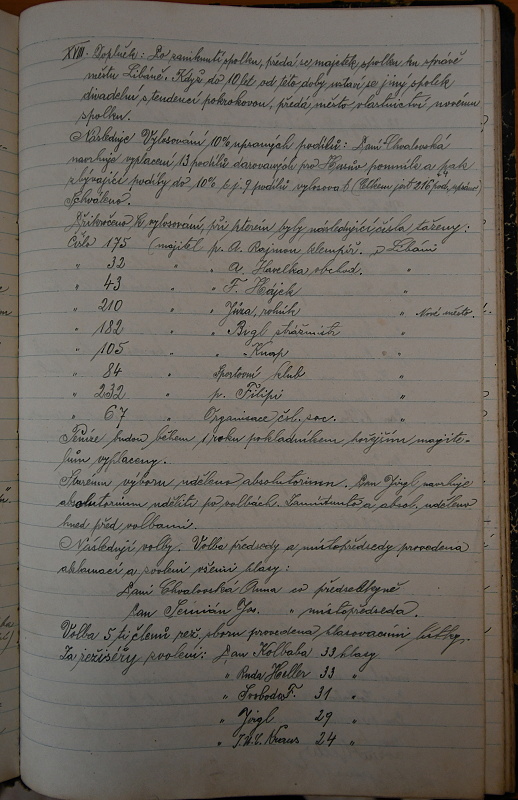 XVIII. Doplněk: Po zaniknutí spolku, předá se majetek spolku ku správě
městu Libáně. Když do 10 let od této doby ustaví se jiný spolek
divadelní s tendencí pokrokovou, předá město vlastnictví novému
spolku.
Následuje Vylosování 10% upsaných podílů: Paní Chvalovská
navrhuje vyplacení 13 podílů darovaných pro Husův pomník a pak
zbývající podíly do 10% t.j. 9 podílů vylosovati (Celkem jest 216 pod. upsáno)
Schváleno.
Přikročeno k vylosování, při kterém byly následující čísla taženy:
Číslo 175 (majitel p. A. Rajman klempíř. z Libáně
" 32 " " A. Havelka obchod. "
" 43 " " F. Hájek "
" 210 " " Jůza, rolník " Nové město.
" 182 " " Bvgl strážmistr "
" 105 " " Knap " "
" 84 " Sportovní klub "
" 232 " p. Filipi "
" 67 " Organisace čsl. soc. "
Peníze budou během 1 roku pokladníkem hořejším majite-
lům vyplaceny.
Starému výboru uděleno absolutorium. Pan Jörgl navrhuje
absolutorium uděliti po volbách. Zamítnuto a absol. uděleno
hned před volbami.
Následují volby. Volba předsedy a místopředsedy provedena
aklamací a zvoleni všemi hlasy:
Paní Chvalovská Anna co předsedkyně
Pan Jos. " místopředseda.
Volba 5 ti členů rež. sboru provedena hlasovacími lístky.
Za režiséry zvoleni: Pan Kolbaba 33 hlasy
" Ruda Heller 33 "
" Svoboda F. 31 "
" Jörgl 29 "
" Kraus 24 "